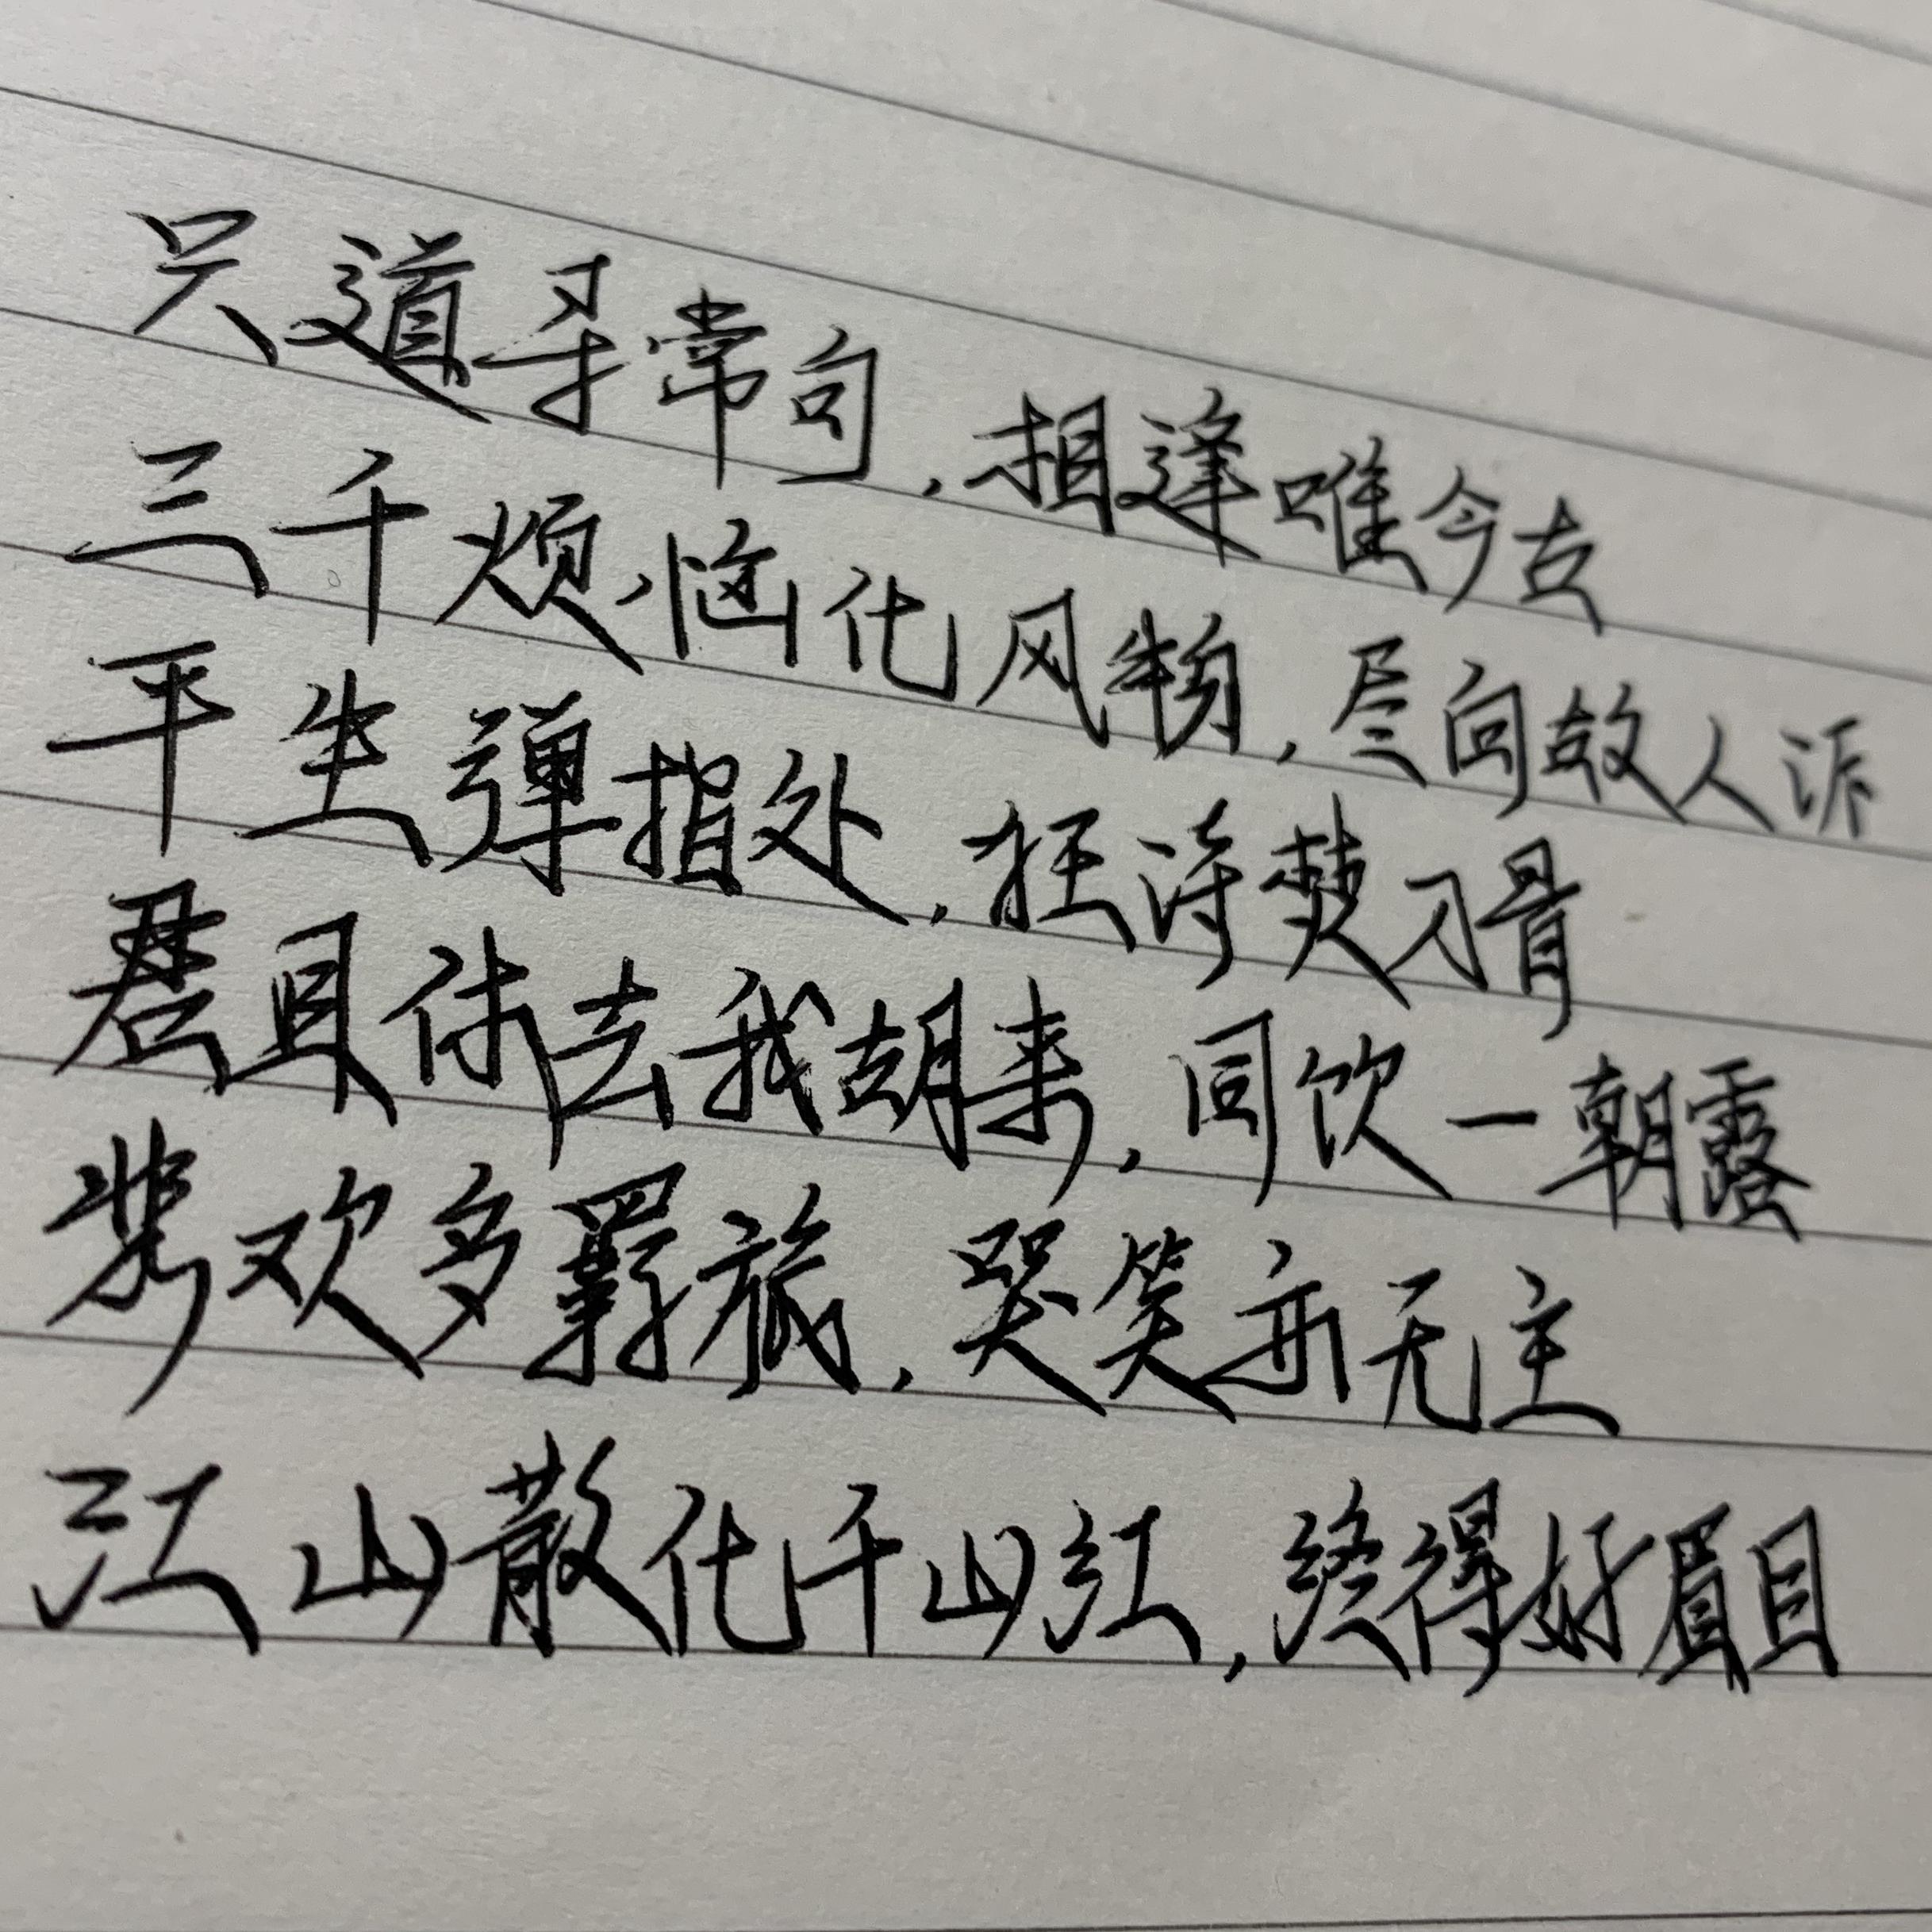 只道寻常句,相逢唯今古
三千烦恼化风物,尽向故人诉
平生弹指处,狂诗焚刁骨
君且休去我胡来,同饮一朝露
悲欢多羁旅,哭笑亦无主
江山散化千山红,终得好眉目